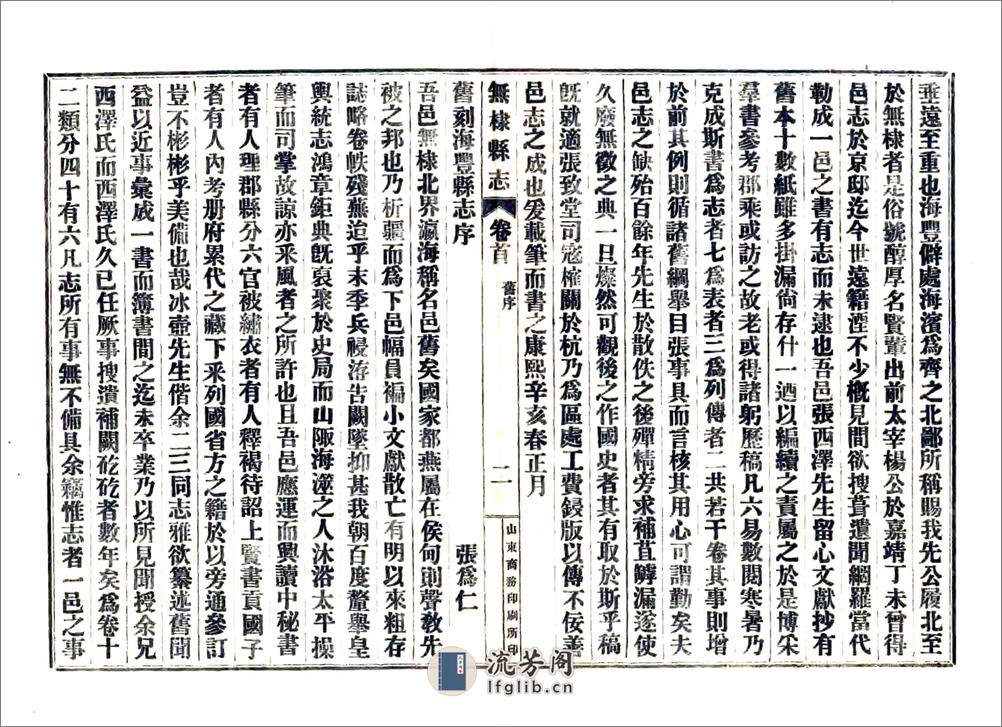 垂遠至重也海豐僻處海濱爲齊之北鄙所稱賜我先公履北至
於無棣者是俗號醇厚名賢輩出前太宰楊公於嘉靖丁未曾得
邑志於京邸迄今世遠籍湮不少概見間欲搜葺遺聞網羅當代
勒成一邑之書有志而未逮也吾邑張西澤先生留心文獻抄有
舊本十數紙雖多掛漏尚存什一迺以編纘之責屬之於是博采
羣書參考郡乘或訪之故老或得諸躬歷稿凡六易數閱寒暑乃
克成斯書爲志者七爲表者三爲列傳者二共若干卷其事則增
於前其例則循諸舊綱舉目張事具而言核其用心可謂勤矣夫
邑志之缺殆百餘年先生於散佚之後殫精旁求補苴罅漏遂使
久廢無徵之典一旦燦然可觀後之作國史者其有取於斯乎稿
旣就適張致堂司寇榷關於杭乃爲區處工費鋟版以傳不佞善
邑志之成也爰載筆而書之康熙辛亥春正月
無棣縣志 卷首 舊序 二 山東商務印刷所印
舊刻海豐縣志序 張爲仁
吾邑無棣北界瀛海稱名邑舊矣國家都燕屬在侯甸則聲敎先
被之邦也乃析疆而爲下邑幅員褊小文獻散亡有明以來粗存
誌略卷帙殘蕪迨乎末季兵祲洊告闕墜抑甚我朝百度釐舉皇
輿統志鴻章鉅典旣裒聚於史局而山陬海澨之人沐浴太平操
筆而司掌故諒亦采風者之所許也且吾邑應運而興讀中秘書
者有人理郡縣分六官被繡衣者有人釋褐待詔上賢書貢國子
者有人內考册府累代之藏下釆列國省方之籍於以旁通參訂
豈不彬彬乎美備也哉冰壺先生偕余二三同志雅欲纂述舊聞
益以近事彙成一書而簿書間之迄未卒業乃以所見聞授余兄
西澤氏而西澤氏久已任厥事搜遺補闕矻矻者數年矣爲卷十
二類分四十有六凡志所有事無不備具余竊惟志者一邑之事
流芳阁
lfglib.cn